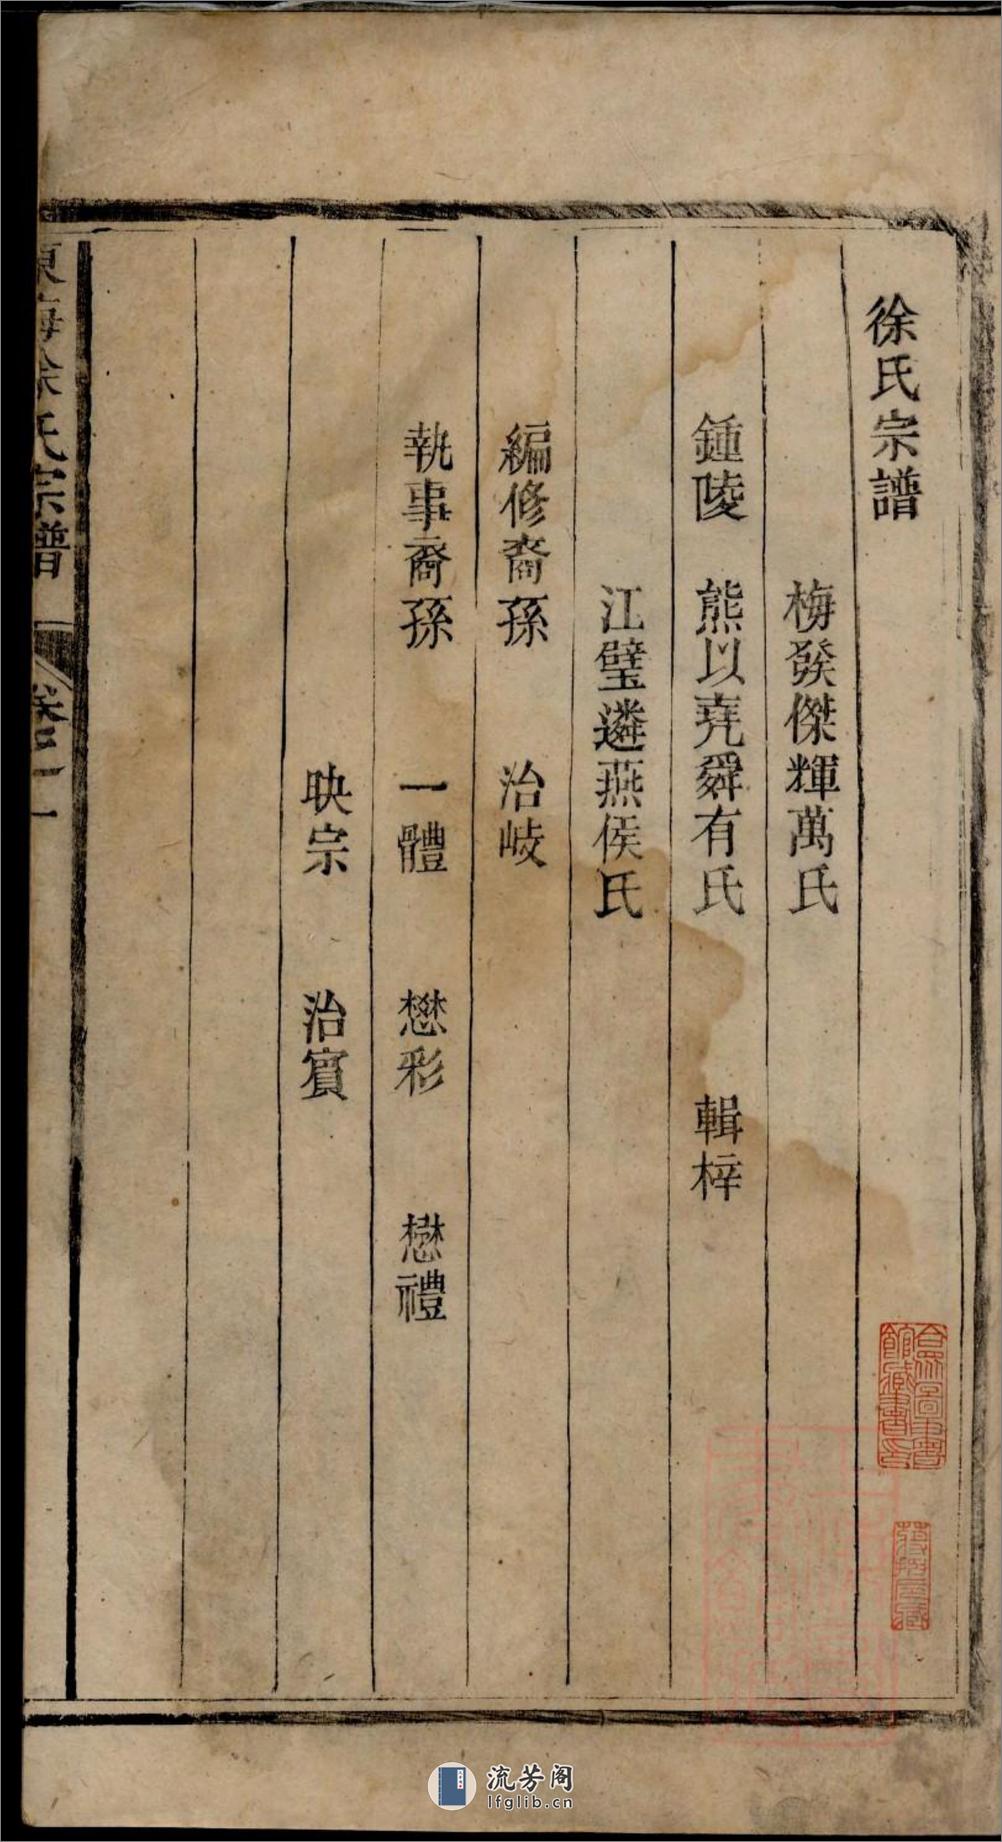 徐氏宗譜
梅發傑輝萬氏
鍾陵 熊以堯舜有氏 輯梓
江璧遴燕侯氏
編修裔孫 治岐
執事裔孫 一體 懋彩 懋禮
映宗 治賓
東海徐氏宗譜 卷之一
合眾圖書館藏書印
流芳阁
lfglib.cn